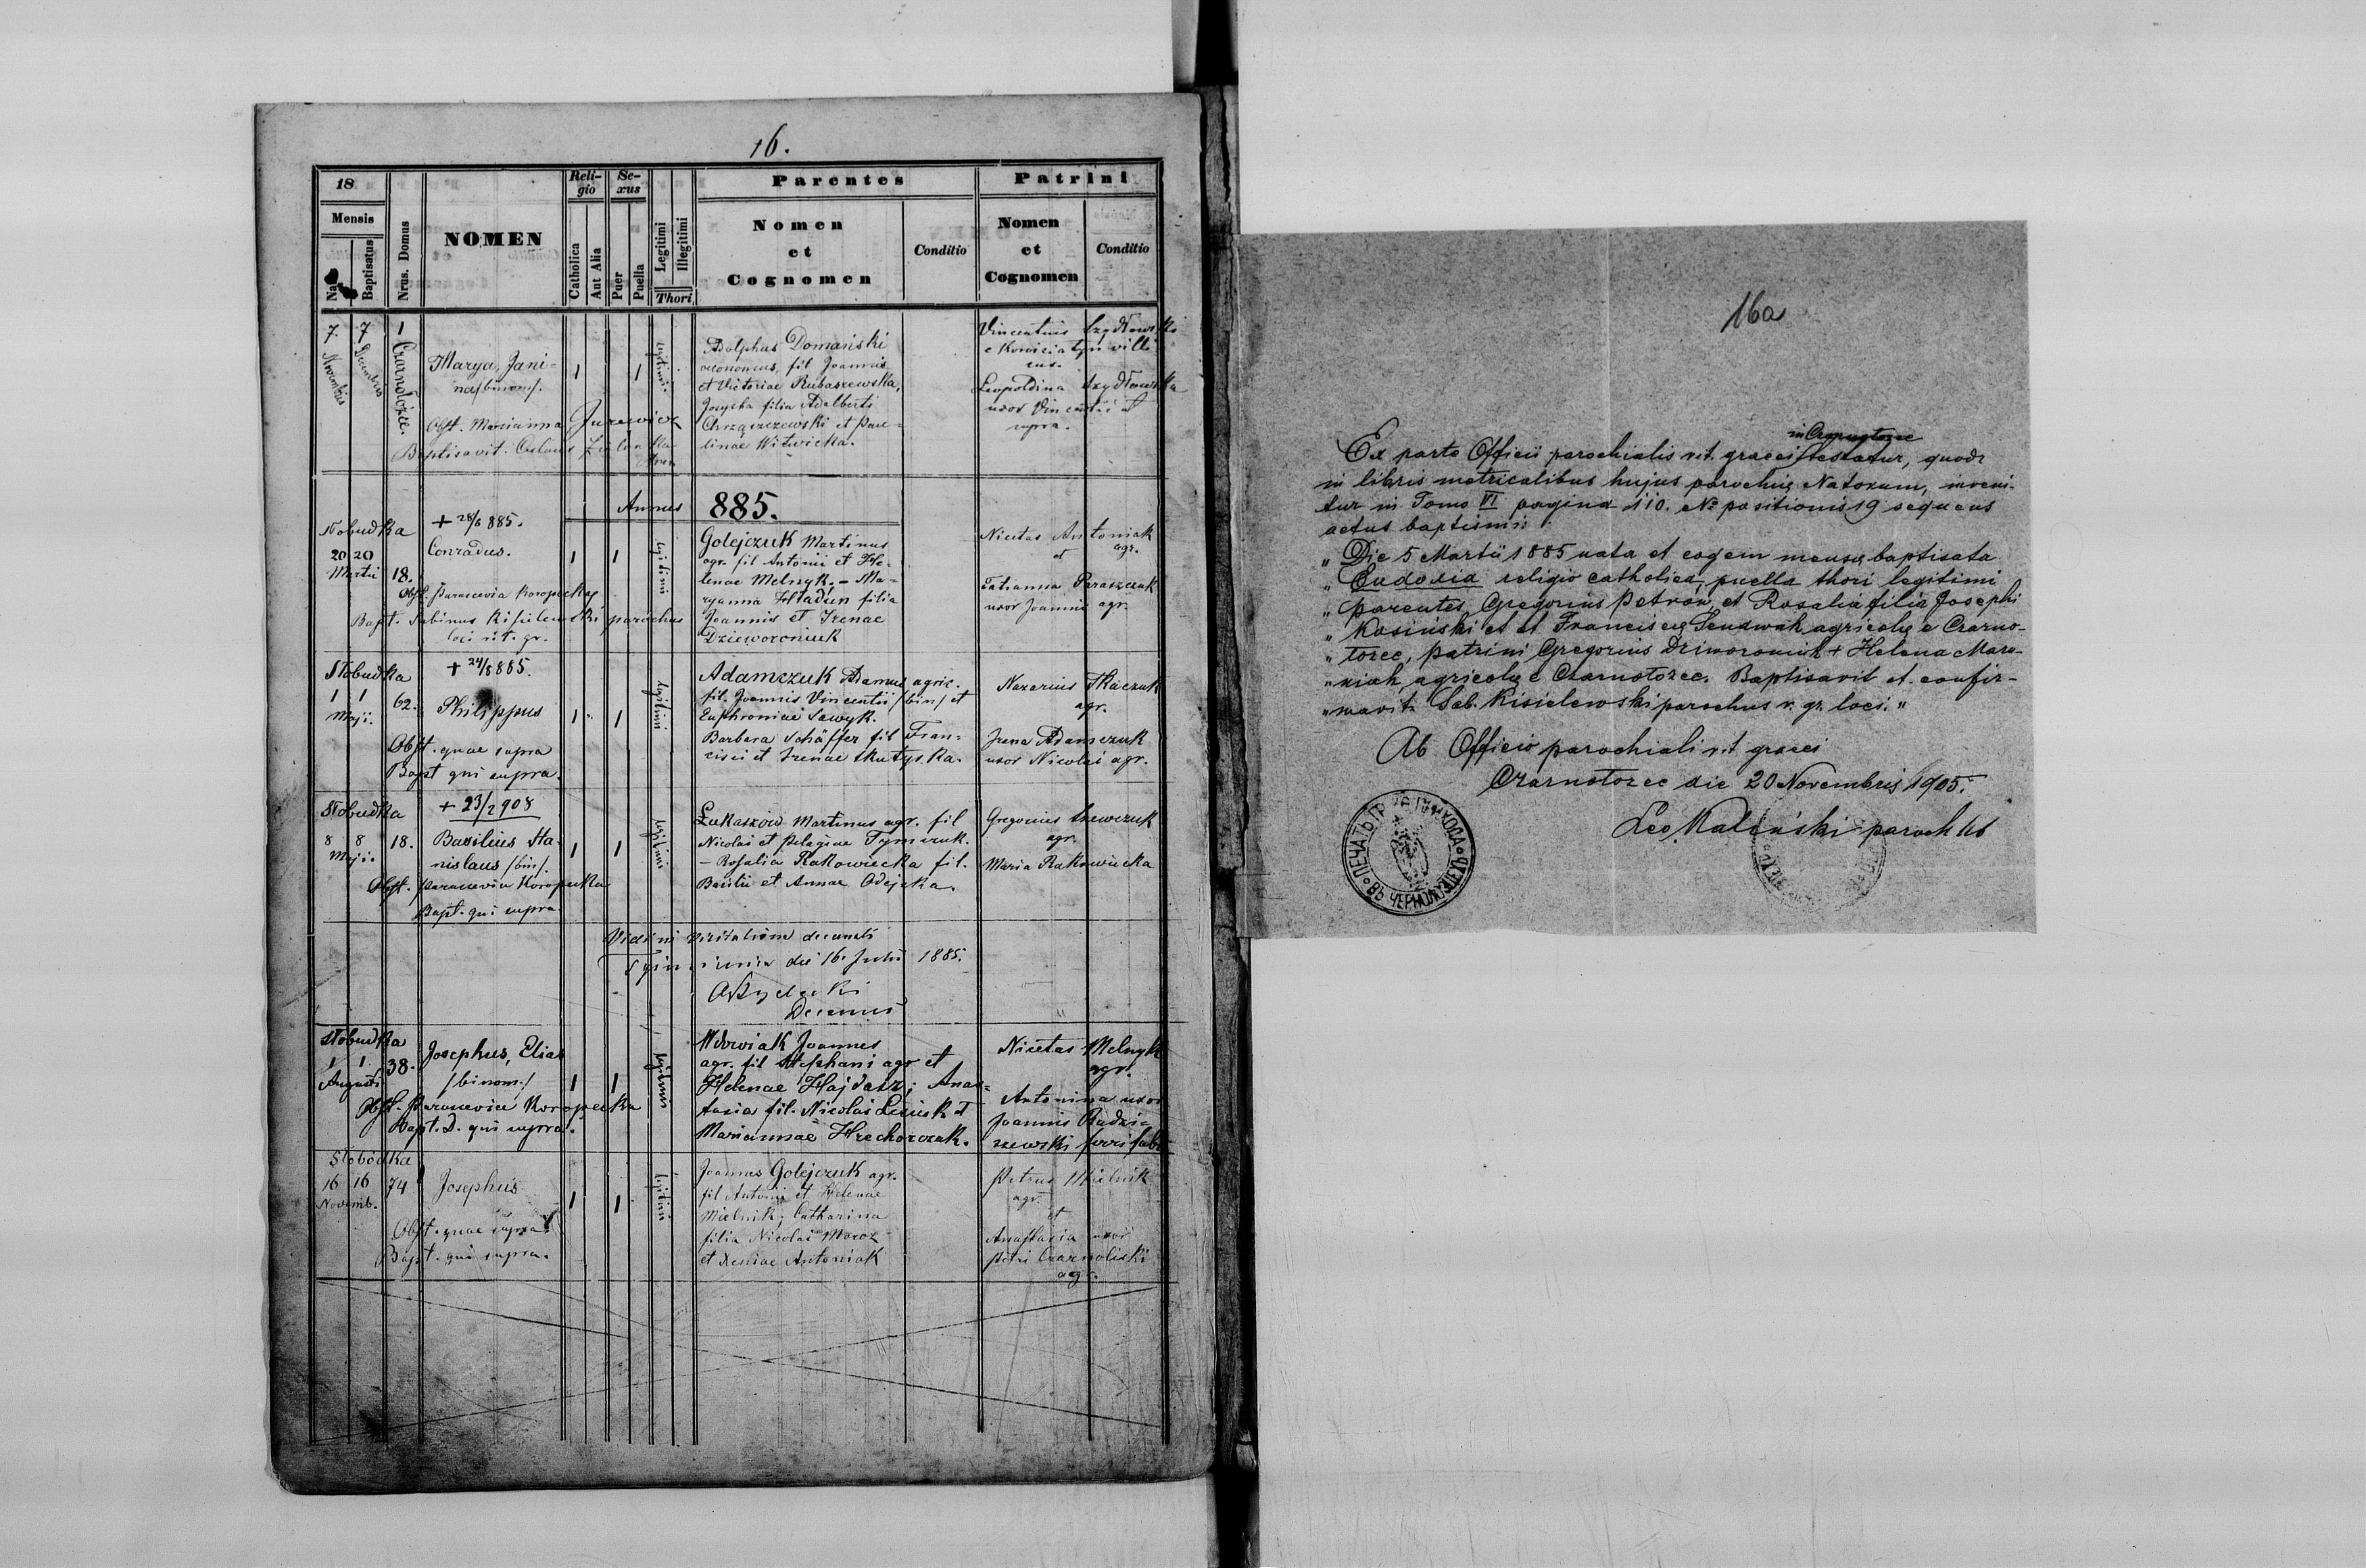 16.
18
Mensis
Baptisatus
Nrus. Domus
NOMEN
Reli-
gio
Catholica
Aut Alia
Se-
xus
Puer
Puella
Legitimi
Illegitimi
Thori
Parentes
Nomen
et
Cognomen
Conditio
Patrini
Nomen
et
Cognomen
Conditio
7. 7 1
Novembris
Decembris
Marya, Jani-
na /binom/.
Obst. Marianna Jurewicz
Baptisavit
1 1
legitimi
Adolphus Domański
oeconomus, fil Joannis
et Victoriae Rubaszewska,
Josepha filia Adalberti
et Pau-
linae Witwicka.
Vincentius Szydłowski
villi
cus.
Leopoldina Szydłowska
uxor Vincentii ut
supra.
Annus 885.
Slobudka
+ 28/8 885.
20 20
Martii
18.
Conradus.
Obst. Parascevia Koropecka
Bapt. Sabinus Kisielewski parochus
loci rit. gr.
1 1
legitimi
Golejczuk Martinus
agr. fil Antonii et He-
lenae Melnyk. - Ma-
ryanna Hładun filia
Joannis et Irenae
Dzieworoniuk
Nicetas Antoniak
agr.
et
Tatianna Paraszczuk
uxor Joannis agr.
Slobudka
+ 24/8 885.
1 1
Maji.
62.
Philippus
Obst. quae supra
Bapt qui supra.
1 1
legitimi
Adamczuk Adamus agric.
fil. Joannis Vincentii /bin/ et
Euphroniae Sawyk.
Barbara Schäffer fil Fran-
cisci et Irenae Skutyska.
Nazarius Tkaczuk
agr.
Irena Adamczuk
uxor Nicolai agr.
Slobudka
+ 23/2 908
8 8
Maji.
18.
Basilius Sta-
nislaus /bin/.
Obst. Parascevia Koropecka
Bapt. qui supra
1 1
legitimi
Łukasków Martinus agr. fil
Nicolai et Pelagiae Tymczuk.
- Rosalia Rakowiecka fil.
Basilii et Annae Odejska.
Gregorius Szewczuk
agr.
Maria Rakowiecka
Vidi in visitatione decanali
die 16 Julii 1885.
Decanus
Slobudka
1 1
Augusti
38.
Josephus, Elias
/binom./
Obst. Parascevia Koropecka
Bapt. D. qui supra.
1 1
legitimi
Wdowiak Joannes
agr. fil Stephani agr et
Helenae Hajdasz; Anas-
tasia fil. Nicolai Lesiuk et
Mariannae Hrechorczuk.
Nicetas Melnyk
agr.
Antonina uxor
Joannis Radzi-
szewski ferri fabri
Slobodka
16 16
Novemb.
74
Josephus
Obst. quae supra
Bapt. qui supra.
1 1
legitimi
Joannes Golejczuk agr.
fil Antonii et Helenae
Mielnik; Catharina
filia Nicolai Moroz
et Xeniae Antoniak
Petrus Mielnik
agr.
et
Anastasia uxor
Petri Czarnoliski
agr.
16a
in Czarnołozce
Ex parte Officii parochialis rit. graeci testatur, quod
in libris metricalibus hujus parochię Natorum, inveni-
tur in Tomo VI pagina 110. № positionis 19 sequens
actus baptismi:
„ Die 5 Martii 1885 nata et eogem mensę baptisata
„ Eudoxia religio catholica, puella thori legitimi
„ parentes Gregorius Petrów et Rosalia filia Josephi
„ Kosiński et Francisę Sendwak agricolę e Czarno-
„ łozec, patrini Gregorius Dziworoniuk + Helena Maro-
„ niak agricolę e Czarnołozec. Baptisavit et confir-
„ mavit Sab. Kisielewski parochus r. gr. loci."
Ab Officio parochiali rit graeci
Czarnołozec die 20 Novembris 1905.
Leo Kaliński parochus